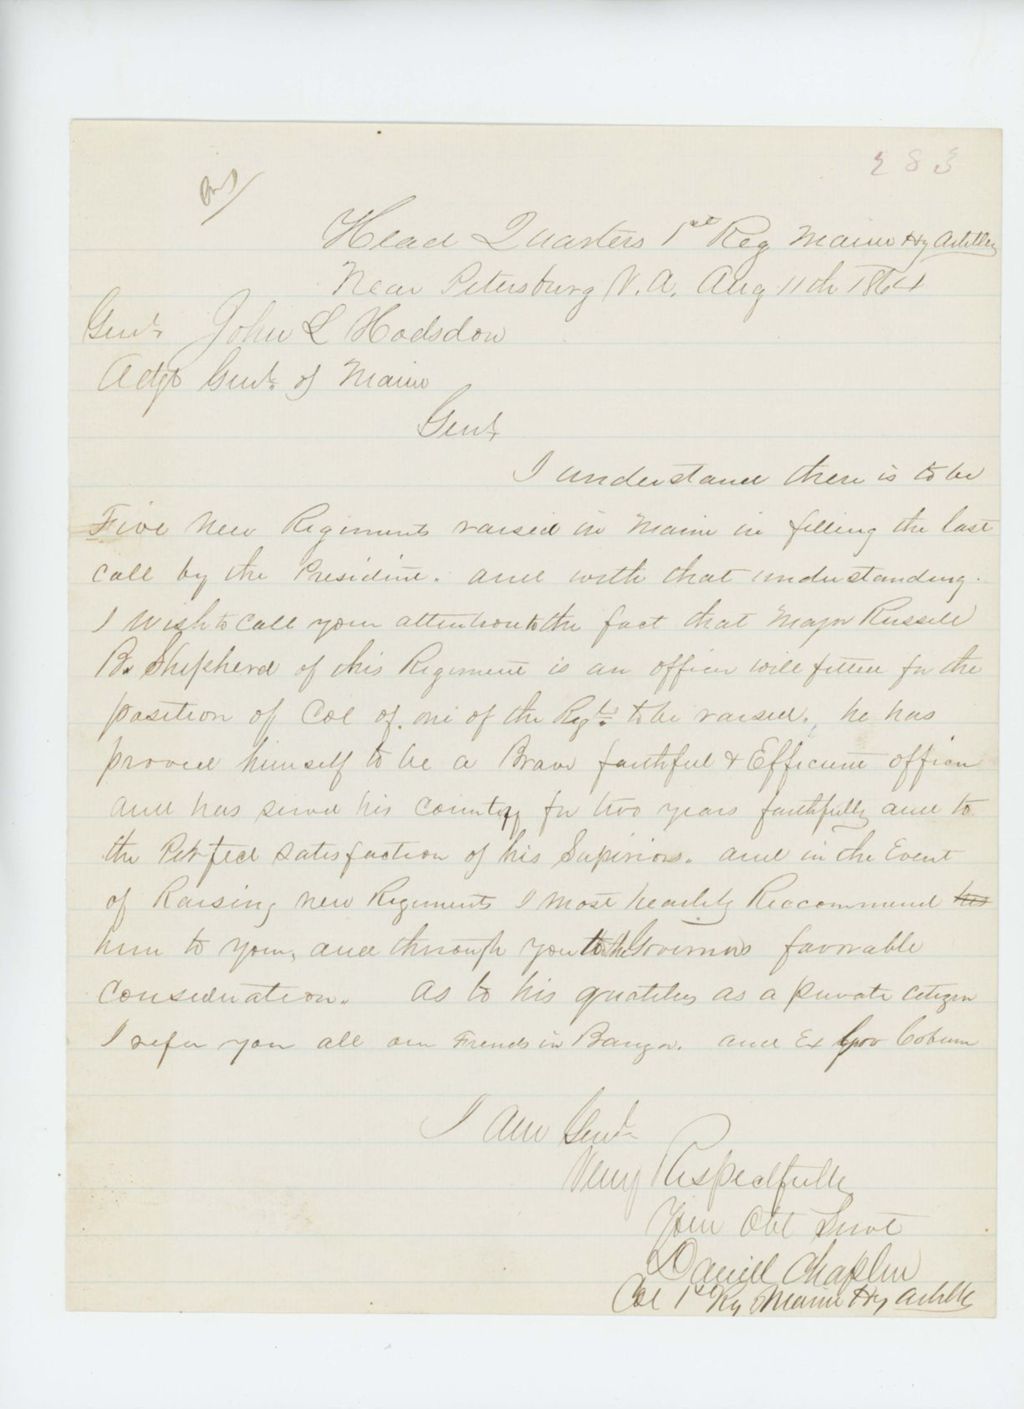 283
Head Quarters 1st Reg Maine Hy Artillery
Near Petersburg V.A. Aug 11th 1864
Genl John L Hodsdon
Adgt Genl of Maine
Genl
I understand there is to be
Five new Regiments raised in Maine in filling the last
call by the President. and with that understanding.
I wish to call your attention to the fact that Major Russell
B. Shepherd of this Regiment is an officer well fitted for the
position of Col of one of the Regts. to be raised., he has
proved himself to be a Brave faithful & Efficient officer
and has served his country for two years faithfully and to
the Perfect satisfaction of his Superiors. and in the Event
of Raising new Regiments I most heartily Reccommend his
him to your, and through you to the Governors favorable
consideration. As to his qualities as a private citizen
I refer you all our Friends in Bangor. and Ex Gov Coburn
I Am Genl
Very Respectfully
Your Obt Servt
Daniel Chaplin
Col 1st Reg Maine Hy Artille